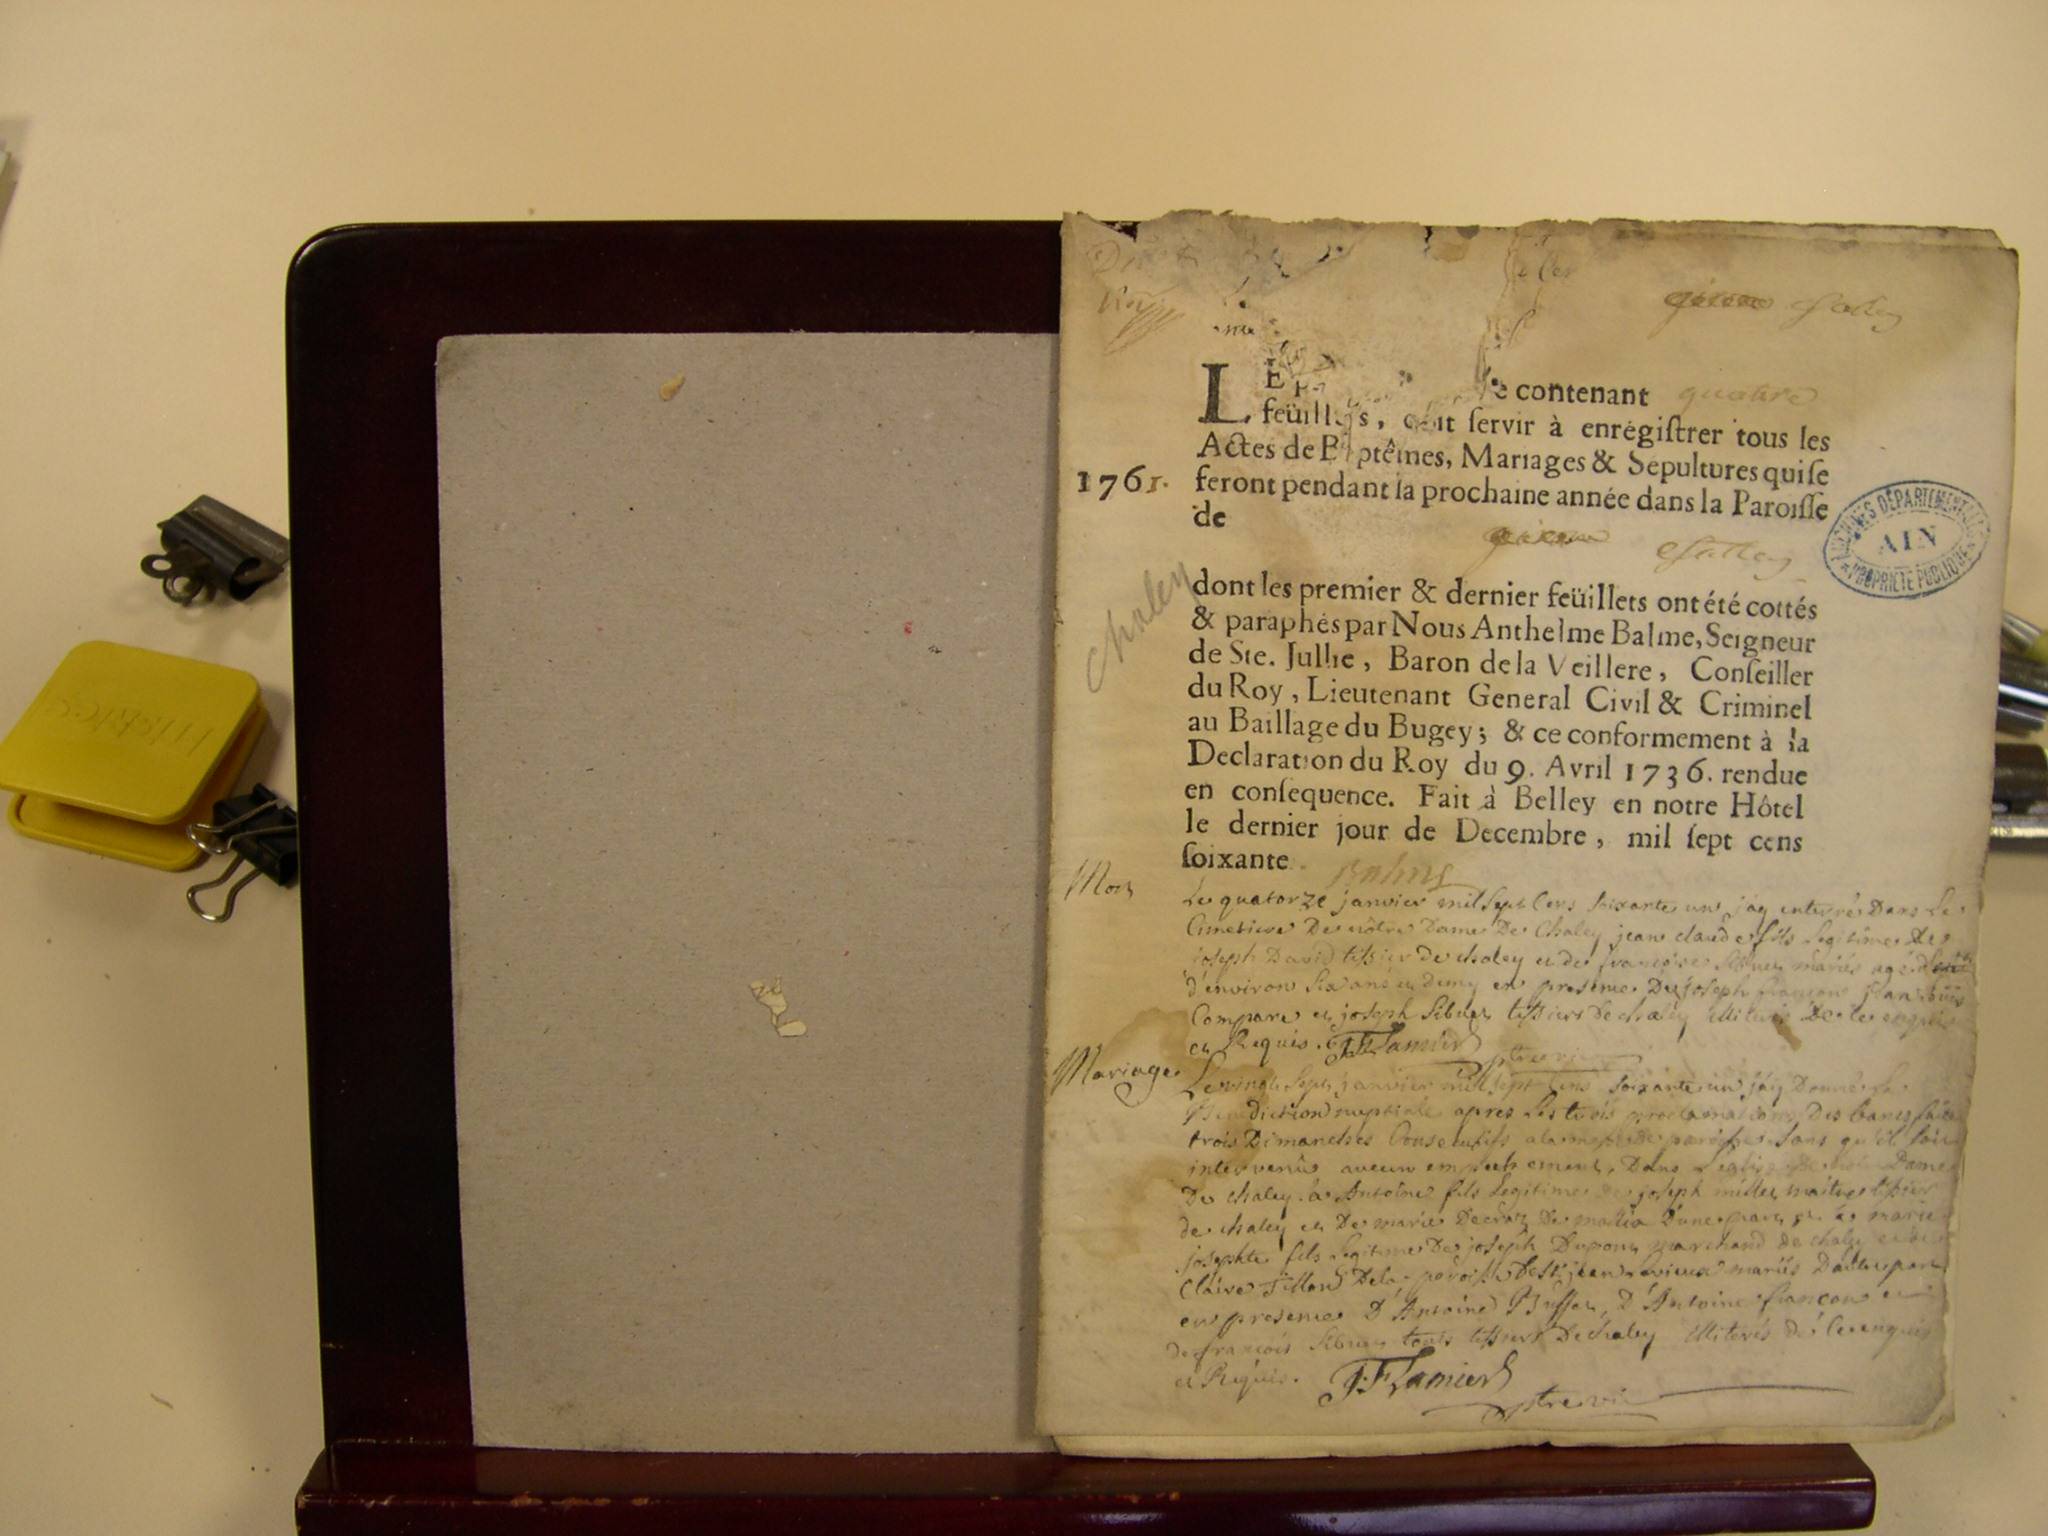 1761.
LE contenant quatre
feüillets, doit servir à enrégistrer tous les
Actes de Baptêmes, Mariages & Sépultures qui se
feront pendant la prochaine année dans la Paroisse
de
chaley
ARCHIVES DÉPARTEMENTALES
AIN
PROPRIÉTÉ PUBLIQUE
dont les premier & dernier feüillets ont été cottés
& paraphés par Nous Anthelme Balme, Seigneur
de Ste. Jullie, Baron de la Veillere, Conseiller
du Roy, Lieutenant General Civil & Criminel
au Baillage du Bugey; & ce conformement à la
Declaration du Roy du 9. Avril 1736. rendue
en consequence. Fait à Belley en notre Hôtel
le dernier jour de Decembre, mil sept cens
soixante. Balme
Mort
Le quatorze janvier mil sept Cens soixante un jay enterré Dans Le
Cimetiere De nôtre Dame De Chaley jean claude fils legitime de
joseph David tissier de chaley et de françoise mariés agé
d'environ six ans et demy en presence De joseph françon jean
Compare et joseph Sibuet tissiers de chaley illiterés De ce enquis
et Requis. J:F Lamierd
Mariage
Le vingt sept janvier mil sept Cens soixante un jay Donné La
Benediction nuptiale apres Les trois proclamations Des bancs faite
trois Dimanches Consecutifs a la messe de paroisse sans qu'il soit
intervenû aucun empechement, Dans L'eglise de notre Dame
De chaley à Antoine fils Legitime de joseph millet maitre tissier
de chaley et De marie Decroz De d'une part et à marie
josephte fils legitime De joseph Dupont marchand de chaley et de
Claire Tillon De la paroisse De St. jean Le vieux mariés D'autre part
en presence D'Antoine Buffet, D'Antoine françon et
de françois Sibuet touts tissiers De chaley illiterés de ce enquis
et Requis. J:F Lamierd